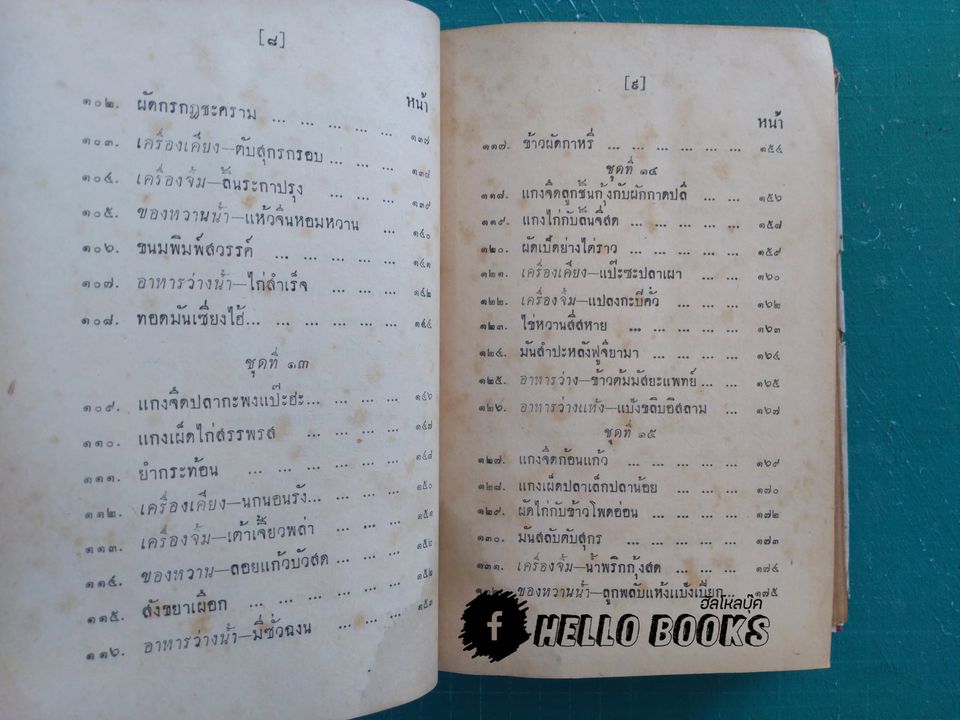 [๘]
หน้า
๑๐๒. ผัดกรกฎชะคราม ... ... ... ... ... ๑๓๗
๑๐๓. เครื่องเคียง—ตับสุกรกรอบ ... ... ... ๑๓๘
๑๐๔. เครื่องจิ้ม—ลิ้นระกาปรุง ... ... ... ๑๓๙
๑๐๕. ของหวานน้ำ—แห้วจีนหอมหวาน ... ๑๔๐
๑๐๖. ขนมพิมพ์สวรรค์ ... ... ... ... ... ๑๔๑
๑๐๗. อาหารว่างน้ำ—ไก่สำเร็จ ... ... ... ๑๔๒
๑๐๘. ทอดมันเซี่ยงไฮ้... ... ... ... ... ... ๑๔๔
ชุดที่ ๑๓
๑๐๙. แกงจืดปลากะพงแป๊ะฮะ... ... ... ... ๑๔๖
๑๑๐. แกงเผ็ดไก่สรรพรส ... ... ... ... ๑๔๗
๑๑๑. ยำกระท้อน ... ... ... ... ... ... ๑๔๘
๑๑๒. เครื่องเคียง—นกนอนรัง... ... ... ... ๑๕๐
๑๑๓. เครื่องจิ้ม—เต้าเจี้ยวพล่า ... ... ... ๑๕๑
๑๑๔. ของหวาน—ลอยแก้วบัวสด ... ... ... ๑๕๒
๑๑๕. สังขยาเผือก ... ... ... ... ... ... ๑๕๒
๑๑๖. อาหารว่างน้ำ—มี่ซั่วฉงน ... ... ... ๑๕๓
[๙]
หน้า
๑๑๗. ข้าวผัดกาหรี่ ... ... ... ... ... ... ๑๕๔
ชุดที่ ๑๔
๑๑๘. แกงจืดลูกชิ้นกุ้งกับผักกาดปลี ... ... ๑๕๖
๑๑๙. แกงไก่กับลิ้นจี่สด ... ... ... ... ... ๑๕๘
๑๒๐. ผัดเป็ดย่างไต่ราว ... ... ... ... ... ๑๕๙
๑๒๑. เครื่องเคียง—แป๊ะซะปลาเผา ... ... ๑๖๐
๑๒๒. เครื่องจิ้ม—แปลงกะปีคั่ว ... ... ... ๑๖๒
๑๒๓. ไข่หวานสี่สหาย ... ... ... ... ... ๑๖๓
๑๒๔. มันสำปะหลังฟูจิยามา ... ... ... ... ๑๖๔
๑๒๕. อาหารว่าง—ข้าวต้มมัสยะแพทย์ ... ... ๑๖๕
๑๒๖. อาหารว่างแห้ง—แป้งขลิบอิสลาม ... ๑๖๗
ชุดที่ ๑๕
๑๒๗. แกงจืดก้อนแก้ว ... ... ... ... ... ๑๖๙
๑๒๘. แกงเผ็ดปลาเล็กปลาน้อย ... ... ... ๑๗๐
๑๒๙. ผัดไก่กับข้าวโพดอ่อน ... ... ... ... ๑๗๒
๑๓๐. มันสลับตับสุกร ... ... ... ... ... ๑๗๓
๑๓๑. เครื่องจิ้ม—น้ำพริกกุ้งสด ... ... ... ๑๗๔
ของหวานน้ำ—ลูกพลับแห้งแป้งเปียก... ... ๑๗๕
ฮัลโหลบุ๊ค
f HELLO BOOKS